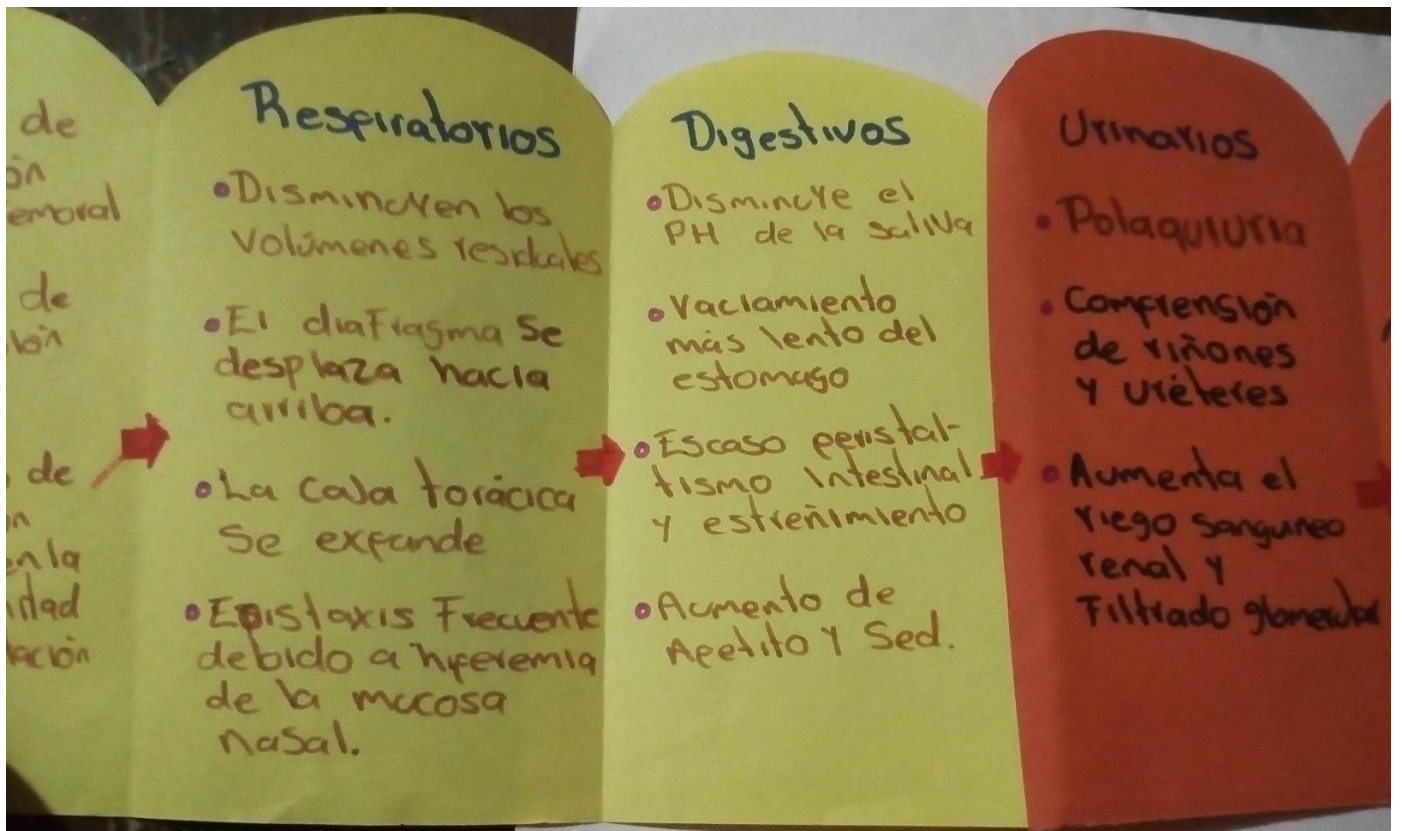 de
ón
emoral
de
bón
de
ón
en la
idad
tación
Respiratorios
•Disminuyen los
volúmenes residuales
•El diafragma se
desplaza hacia
arriba.
•La caja torácica
se expande
•Epistaxis Frecuente
debido a hiperemia
de la mucosa
nasal.
Digestivos
•Disminuye el
PH de la saliva
•Vaciamiento
más lento del
estomago
•Escaso peristal-
tismo intestinal
y estreñimiento
•Aumento de
Apetito y Sed.
Urinarios
•Polaquiuria
•Comprensión
de riñones
y uréteres
•Aumenta el
riego sanguneo
renal y
Filtrado glomerular